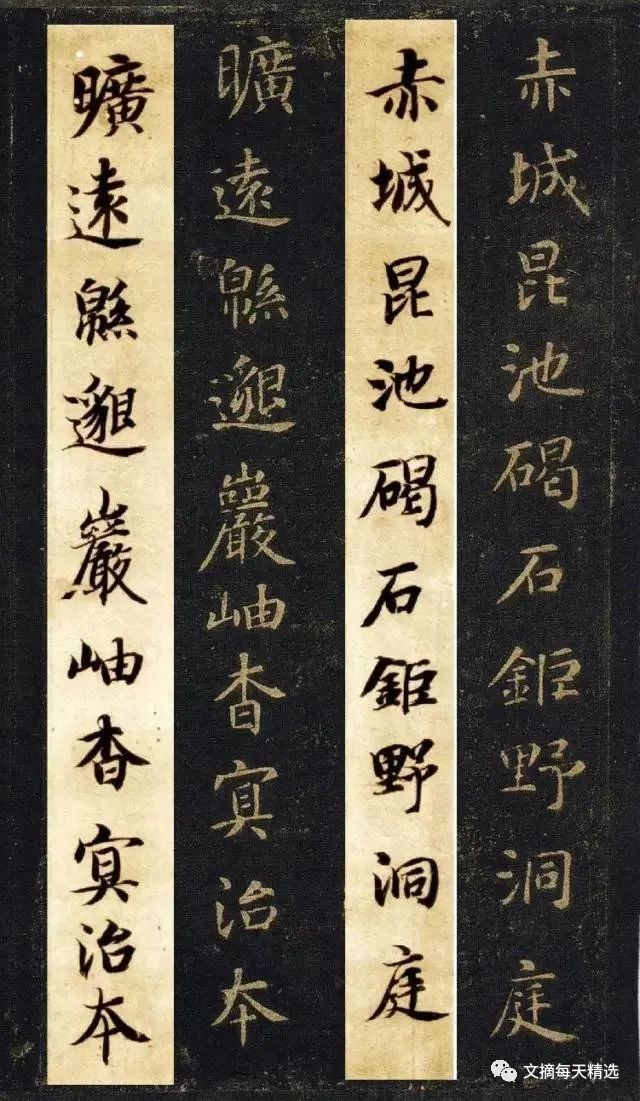 赤城昆池碣石鉅野洞庭
赤城昆池碣石鉅野洞庭
曠遠緜邈巖岫杳冥治本
曠遠緜邈巖岫杳冥治本
文摘每天精选